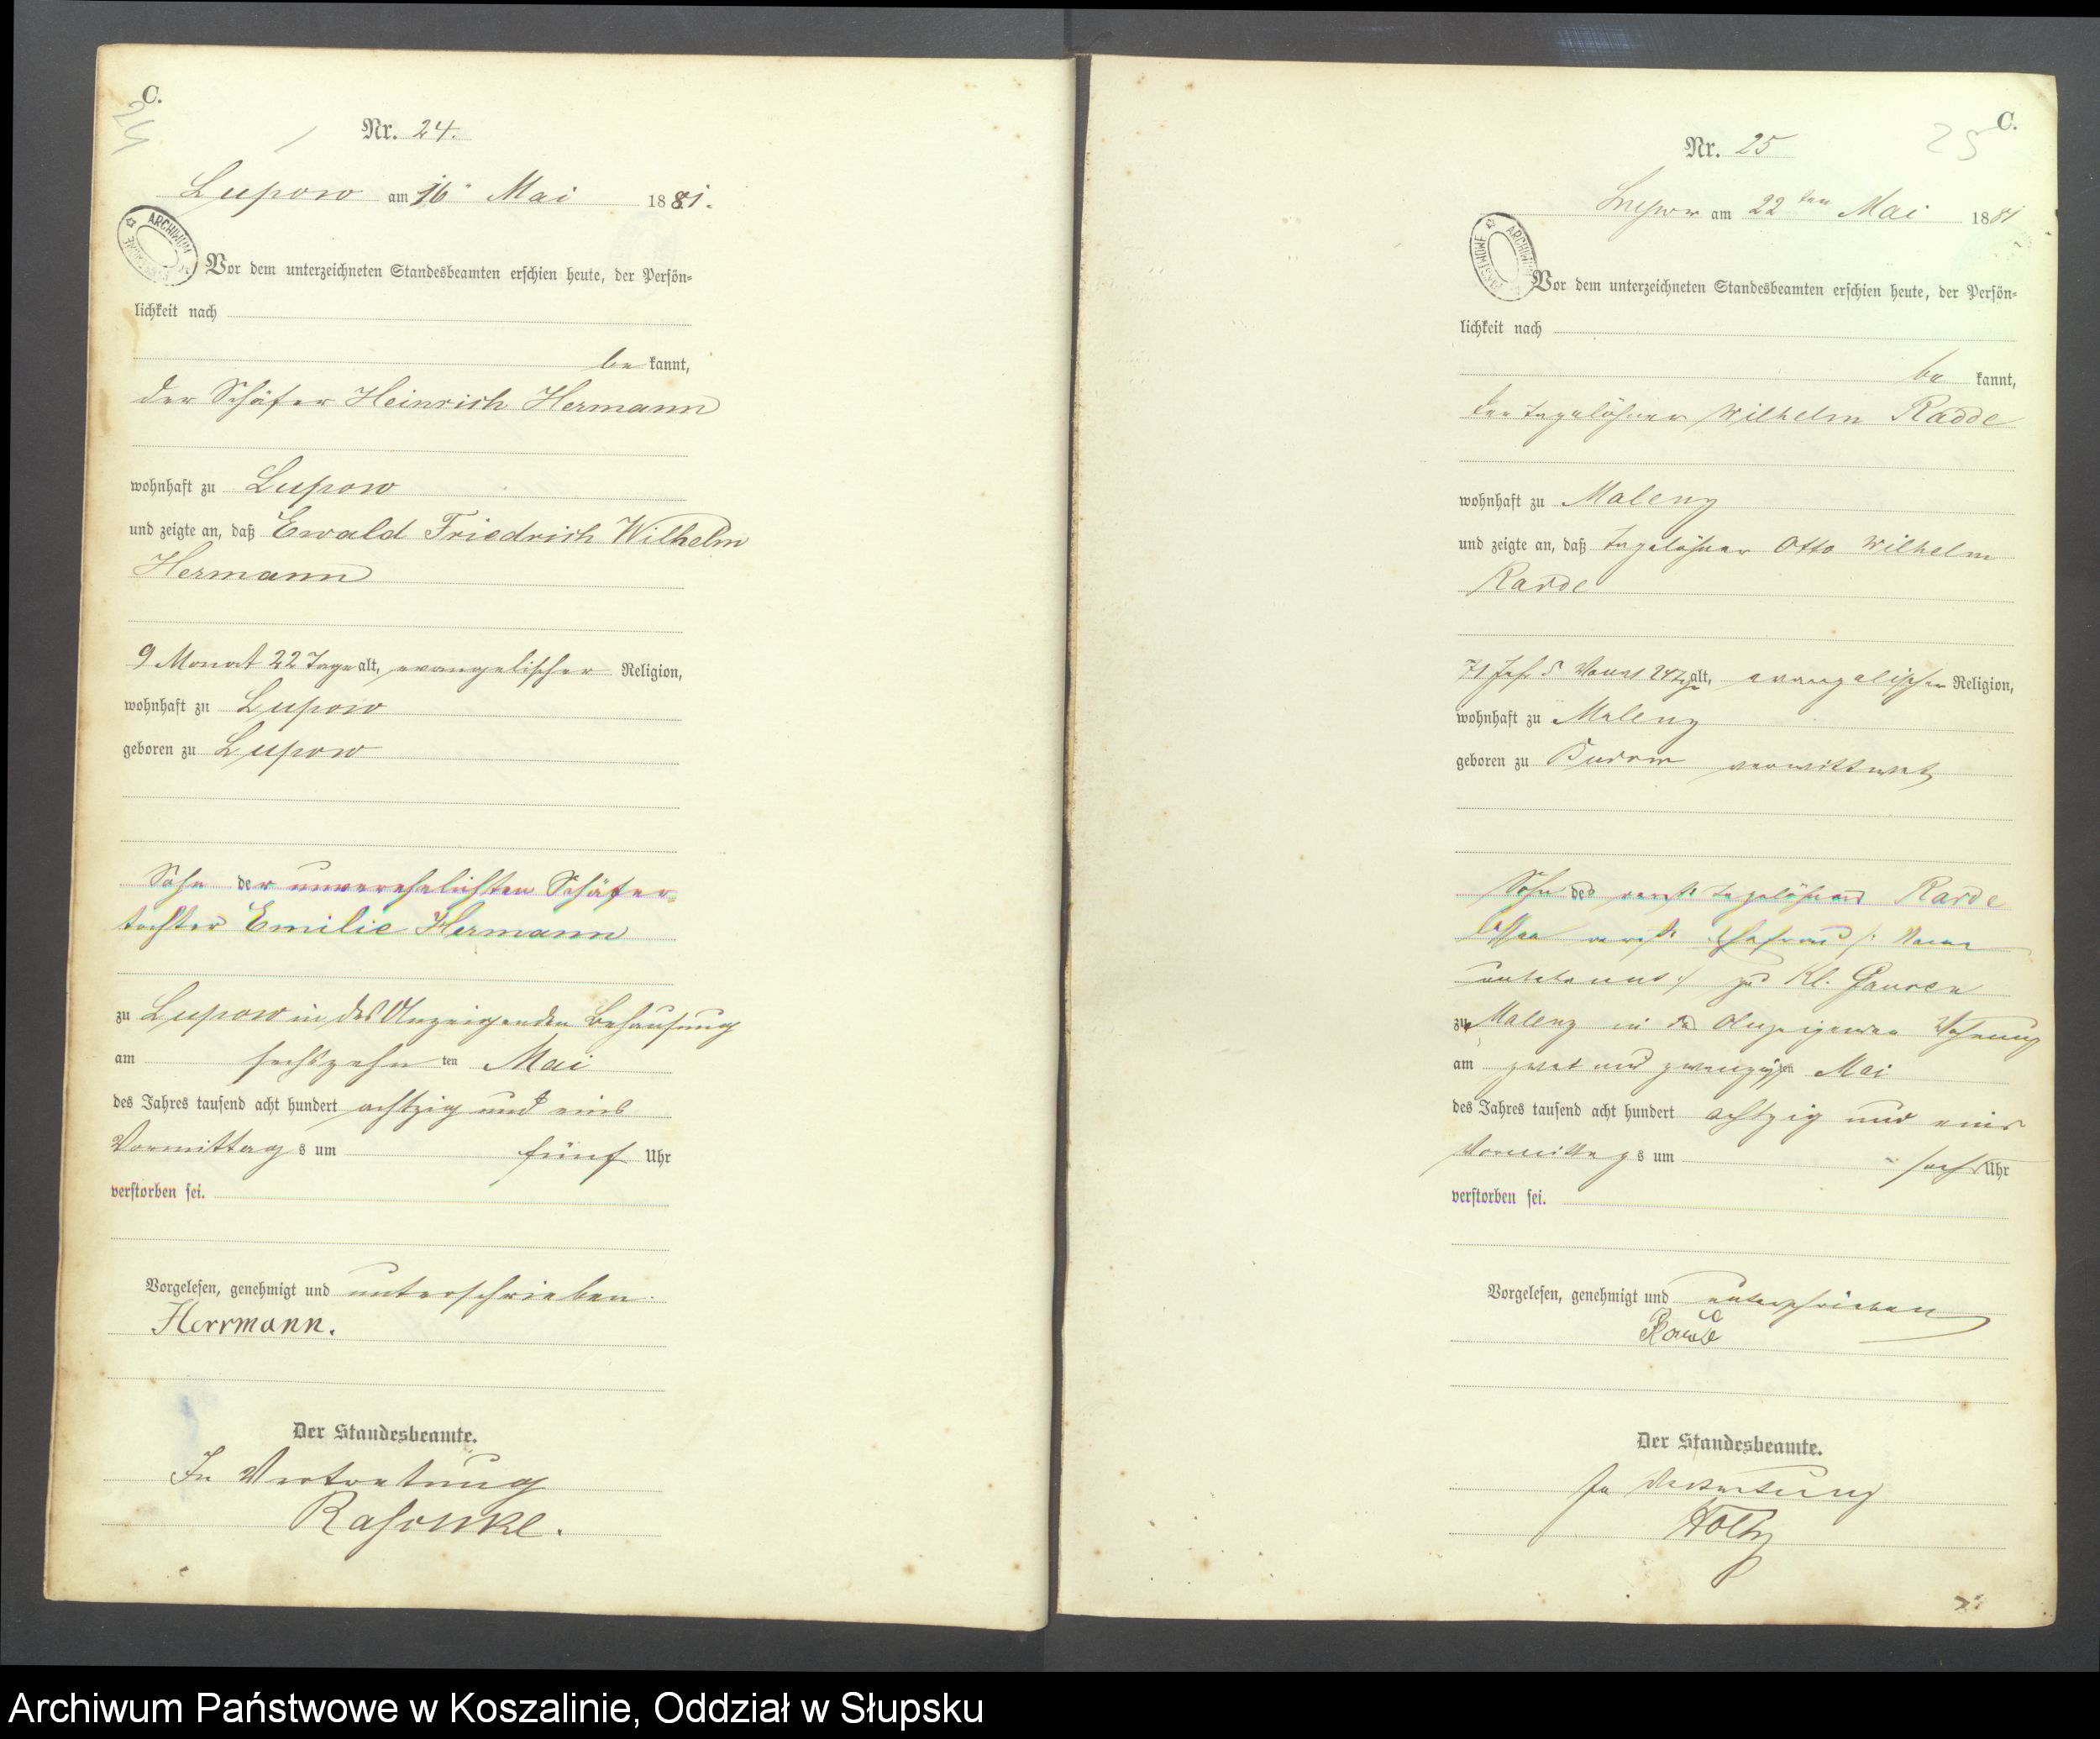 C.
24
Nr. 24.
Lupow am 16ᵗ Mai 1881.
ARCHIWUM PAŃSTWOWE
Vor dem unterzeichneten Standesbeamten erschien heute, der Persön-
lichkeit nach
be kannt,
der Schäfer Heinrich Hermann
wohnhaft zu Lupow
und zeigte an, daß Ewald Friedrich Wilhelm
Hermann
9 Monat 22 Tage alt, evangelischer Religion,
wohnhaft zu Lupow
geboren zu Lupow
Sohn der unverehelichten Schäfer-
tochter Emilie Hermann
zu Lupow in des Anzeigenden Behausung
am sechszehn ten Mai
des Jahres tausend acht hundert achtzig und eins
Vormittag s um fünf Uhr
verstorben sei.
Vorgelesen, genehmigt und unterschrieben.
Herrmann.
Der Standesbeamte.
In Vertretung
C.
25
Nr. 25
Lupow am 22 ten Mai 1881
ARCHIWUM PAŃSTWOWE
Vor dem unterzeichneten Standesbeamten erschien heute, der Persön-
lichkeit nach
be kannt,
der Tagelöhner Wilhelm Radde
wohnhaft zu Malenz
und zeigte an, daß Tagelöhner Otto Wilhelm
Radde
71 Jahr 5 Monat alt, evangelischer Religion,
wohnhaft zu Malenz
geboren zu Budow verwittwet
Sohn des verst. Tagelöhners Radde
dessen verst. Ehefrau /: Name
unbekannt :/ zu Kl. Gansen
zu Malenz in des Anzeigenden Wohnung
am zwei und zwanzigsten Mai
des Jahres tausend acht hundert achtzig und eins
Vormittag s um sechs Uhr
verstorben sei.
Vorgelesen, genehmigt und unterschrieben
Radde
Der Standesbeamte.
In Vertretung
Holtz
Archiwum Państwowe w Koszalinie, Oddział w Słupsku